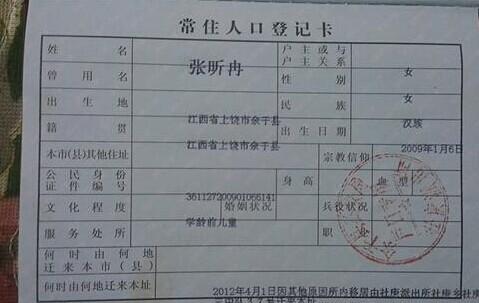 常住人口登记卡
姓名 张昕冉 户主或与户主关系 女
曾用名 性别 女
出生地 江西省上饶市余干县 民族 汉族
籍贯 江西省上饶市余干县 出生日期 2009年1月6日
本市(县)其他住址 宗教信仰
公民身份证件编号 361127200901066141 身高 血型
文化程度 学龄前儿童 婚姻状况 兵役状况
服务处所 职
何时由何地迁来本市(县)
何时由何地迁来本址 2012年4月1日因其他原因所内移居由社庚派出所社庚乡社